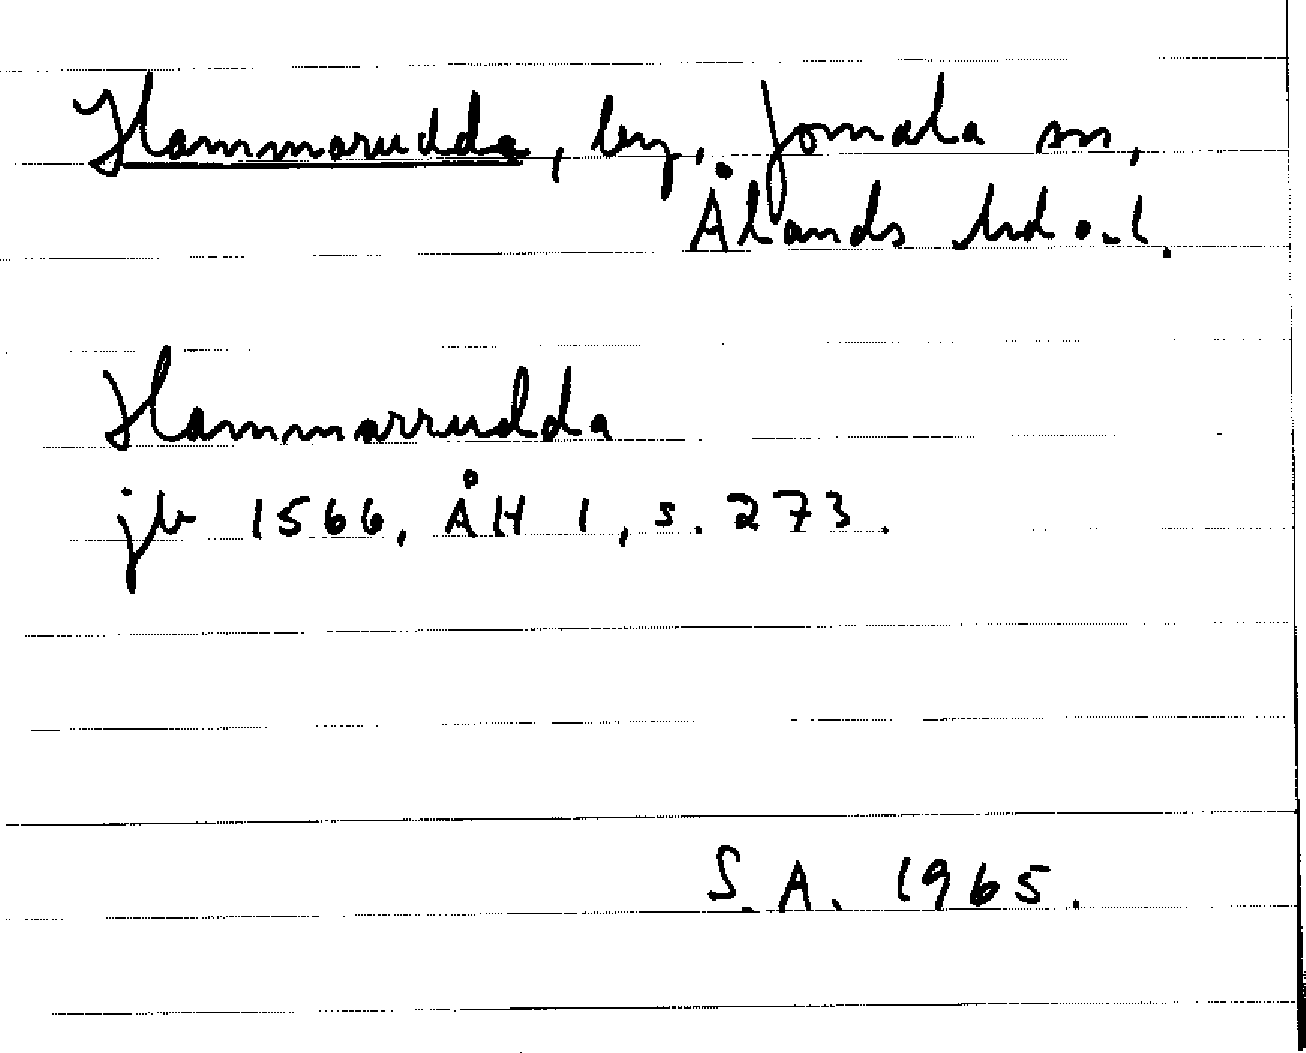 Hammarudda, by, Jomala sn,
Ålands hd o. l.
Hammarrudda
jb 1566, ÅH 1, s. 273.
S. A. 1965.